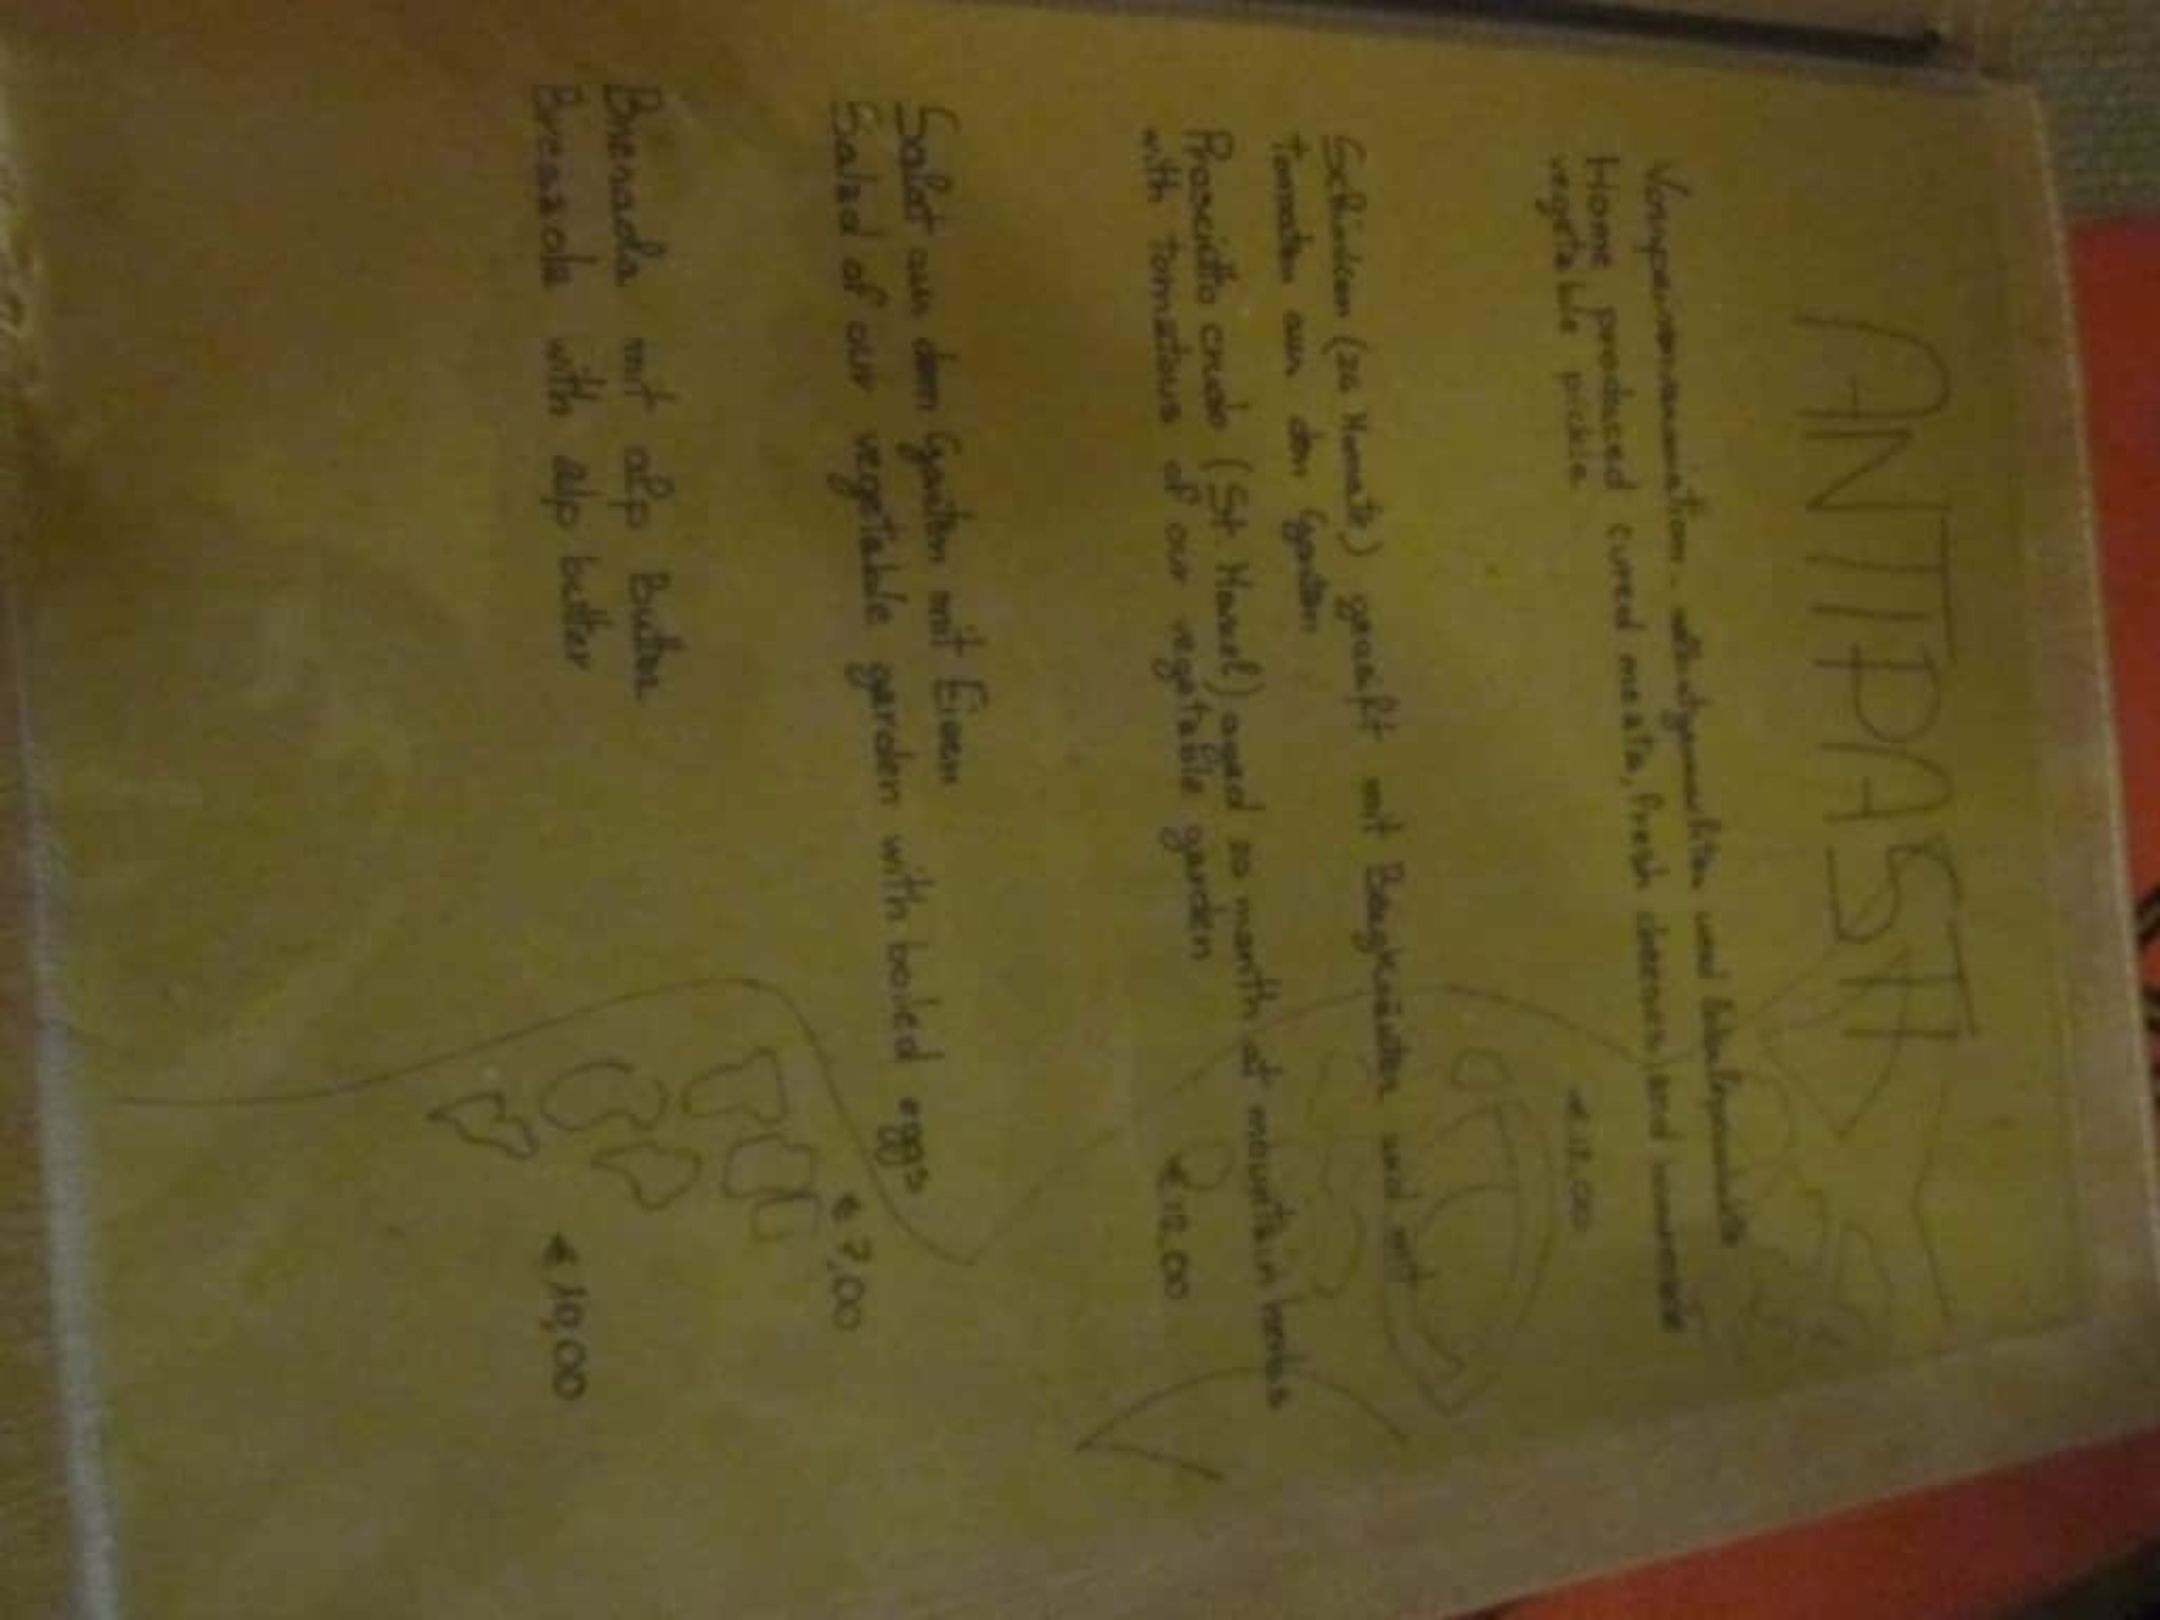 ANTIPASTI
und
Home produced cured meats, fresh cheeses and
vegetable pickle
€ 12,00
Schinken (20 Monate) gereift mit Bergkräuter und mit
Tomaten aus den Garten
Prosciutto crudo (St Marcel) aged 20 month at mountain herbs
with tomatous of our vegetable garden
€ 12,00
Salat aus dem Garten mit Eieren
Salad of our vegetable garden with boiled eggs
€ 7,00
Bresaola mit alp Butter
Breasola with alp butter
€ 10,00